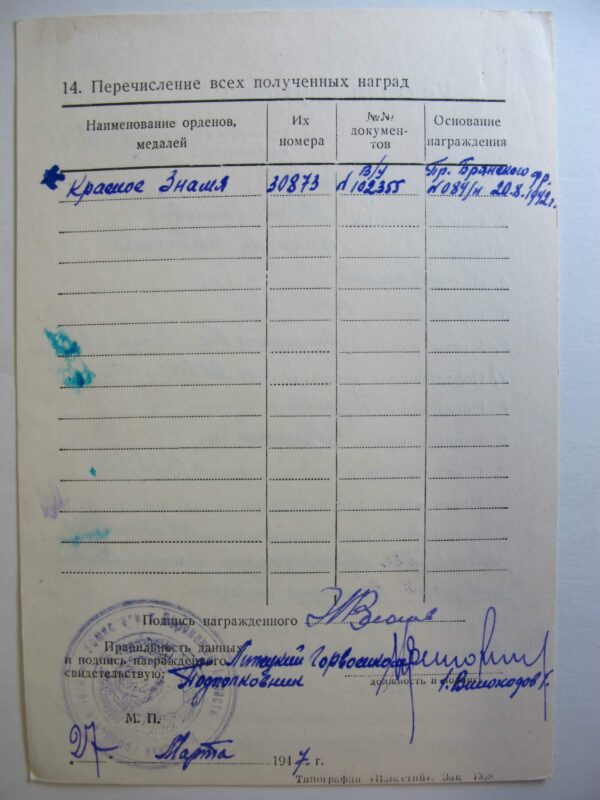 14. Перечисление всех полученных наград
Наименование орденов, медалей
Их номера
№№ докумен-тов
Основание награждения
Красное Знамя
30873
В/У № 102355
Пр. Брянского фр. № 084/н 20.8.1942г.
Подпись награжденного
Правильность данных
и подпись награжденного Липецкий Горвоенком
свидетельствую: Подполковник
должность и
М. П.
27 Марта 1947 г.
Типография «Известий». Зак.